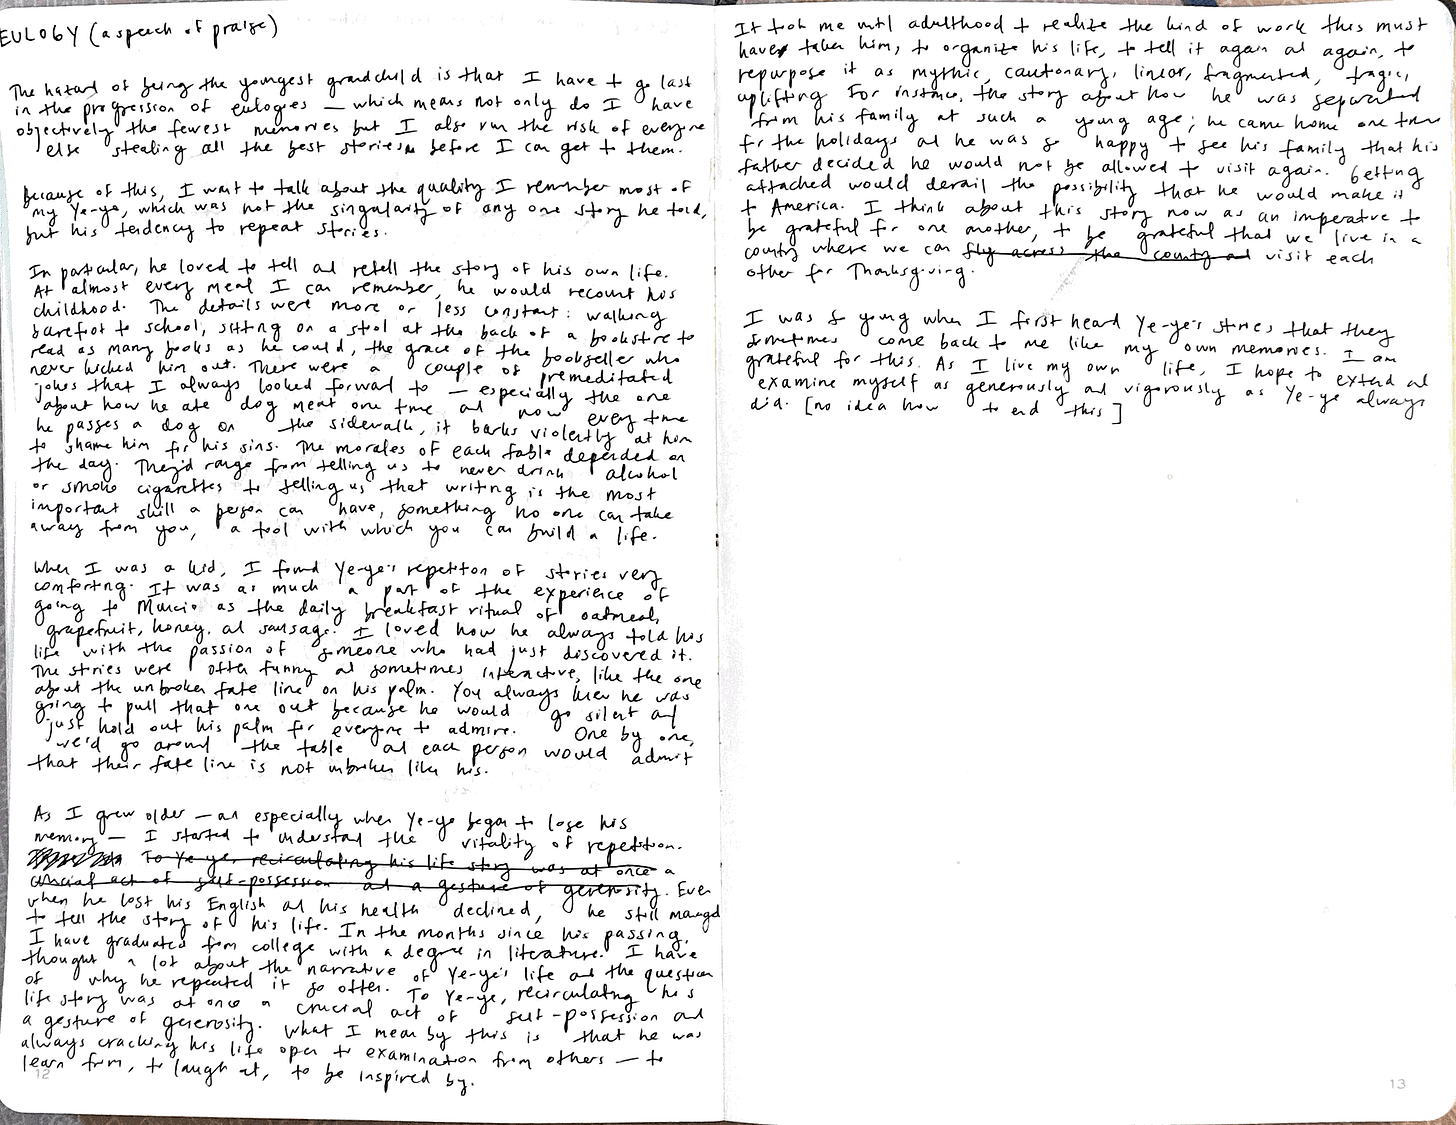 EULOGY (a speech of praise)
The hazard of being the youngest grandchild is that I have to go last
in the progression of eulogies — which means not only do I have
objectively the fewest memories but I also run the risk of everyone
else stealing all the best stories before I can get to them.
Because of this, I want to talk about the quality I remember most of
my Ye-ye, which was not the singularity of any one story he told,
but his tendency to repeat stories.
In particular, he loved to tell and retell the story of his own life.
At almost every meal I can remember, he would recount his
childhood. The details were more or less constant: walking
barefoot to school, sitting on a stool at the back of a bookstore to
read as many books as he could, the grace of the bookseller who
never kicked him out. There were a couple of premeditated
jokes that I always looked forward to — especially the one
about how he ate dog meat one time and now every time
he passes a dog on the sidewalk, it barks violently at him
to shame him for his sins. The morales of each fable depended on
the day. They'd range from telling us to never drink alcohol
or smoke cigarettes to telling us that writing is the most
important skill a person can have, something no one can take
away from you, a tool with which you can build a life.
When I was a kid, I found Ye-ye's repetition of stories very
comforting. It was as much a part of the experience of
going to Muncie as the daily breakfast ritual of oatmeal,
grapefruit, honey, and sausage. I loved how he always told his
life with the passion of someone who had just discovered it.
The stories were often funny and sometimes interactive, like the one
about the unbroken fate line on his palm. You always knew he was
going to pull that one out because he would go silent and
just hold out his palm for everyone to admire. One by one,
we'd go around the table and each person would admit
that their fate line is not unbroken like his.
As I grew older — and especially when Ye-ye began to lose his
memory — I started to understand the vitality of repetition.
To Ye-ye, recirculating his life story was at once a
crucial act of self-possession and a gesture of generosity. Even
when he lost his English and his health declined, he still managed
to tell the story of his life. In the months since his passing,
I have graduated from college with a degree in literature. I have
thought a lot about the narrative of Ye-ye's life and the question
of why he repeated it so often. To Ye-ye, recirculating his
life story was at once a crucial act of self-possession and
a gesture of generosity. What I mean by this is that he was
always cracking his life open to examination from others — to
learn from, to laugh at, to be inspired by.
12
It took me until adulthood to realize the kind of work this must
have taken him, to organize his life, to tell it again and again, to
repurpose it as mythic, cautionary, linear, fragmented, tragic,
uplifting. For instance, the story about how he was separated
from his family at such a young age; he came home one time
for the holidays and he was so happy to see his family that his
father decided he would not be allowed to visit again. Getting
attached would derail the possibility that he would make it
to America. I think about this story now as an imperative to
be grateful for one another, to be grateful that we live in a
country where we can fly across the country and visit each
other for Thanksgiving.
I was so young when I first heard Ye-ye's stories that they
sometimes come back to me like my own memories. I am
grateful for this. As I live my own life, I hope to extend and
examine myself as generously and vigorously as Ye-ye always
did. [no idea how to end this]
13